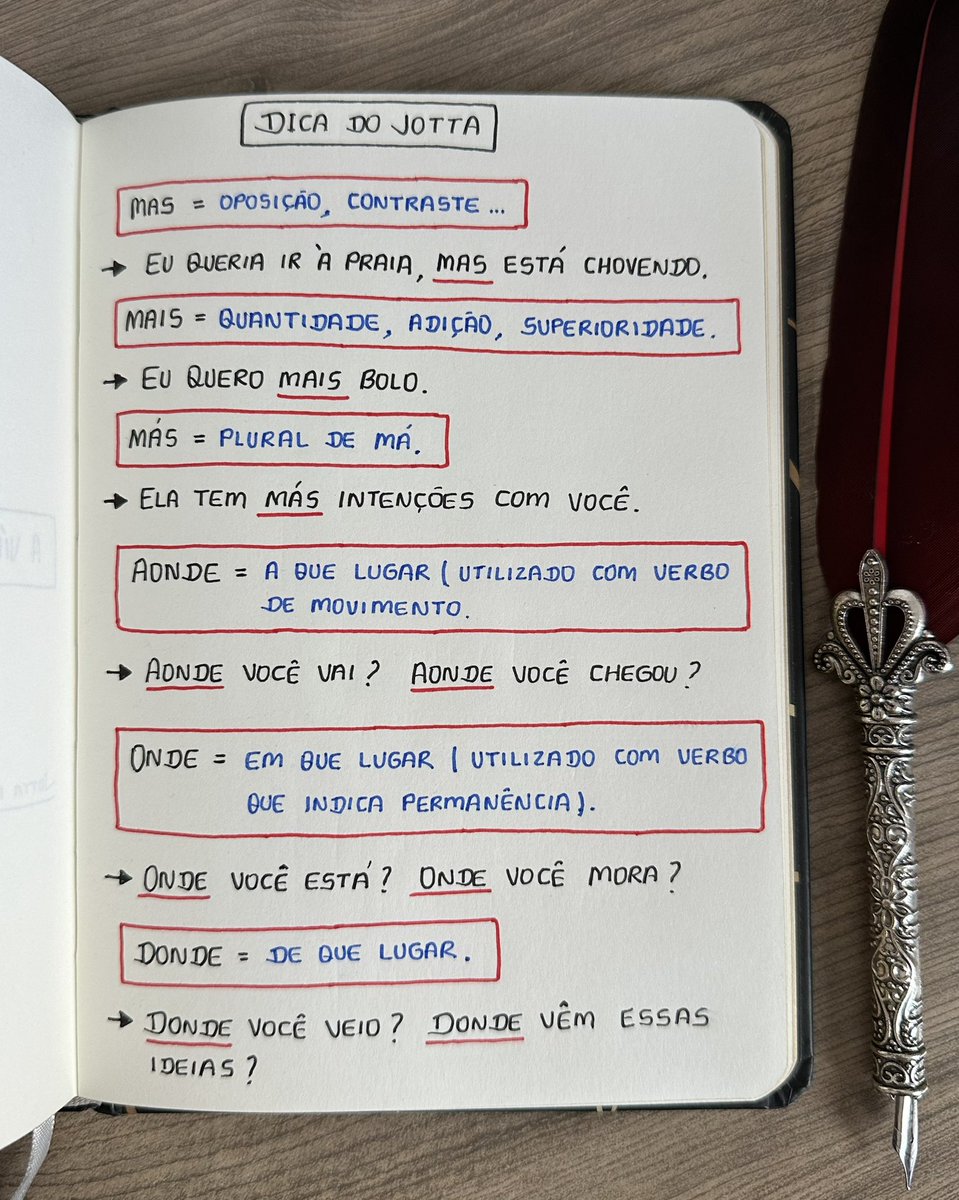 DICA DO JOTTA
MAS = OPOSIÇÃO, CONTRASTE...
→ EU QUERIA IR À PRAIA, MAS ESTÁ CHOVENDO.
MAIS = QUANTIDADE, ADIÇÃO, SUPERIORIDADE.
→ EU QUERO MAIS BOLO.
MÁS = PLURAL DE MÁ.
→ ELA TEM MÁS INTENÇÕES COM VOCÊ.
AONDE = A QUE LUGAR (UTILIZADO COM VERBO
DE MOVIMENTO.
→ AONDE VOCÊ VAI? AONDE VOCÊ CHEGOU?
ONDE = EM QUE LUGAR (UTILIZADO COM VERBO
QUE INDICA PERMANÊNCIA).
→ ONDE VOCÊ ESTÁ? ONDE VOCÊ MORA?
DONDE = DE QUE LUGAR.
→ DONDE VOCÊ VEIO? DONDE VÊM ESSAS
IDEIAS?